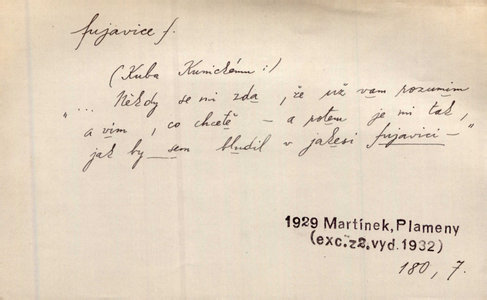 fujavice f.
(Kuba Kunickému:)
"... Někdy se mi zda, že už vam rozumim
a vim, co chcetě – a potem je mi tak,
jak by sem bludil v jakesi fujavici –"
1929 Martínek, Plameny
(exc. z 2. vyd. 1932)
180, 7.